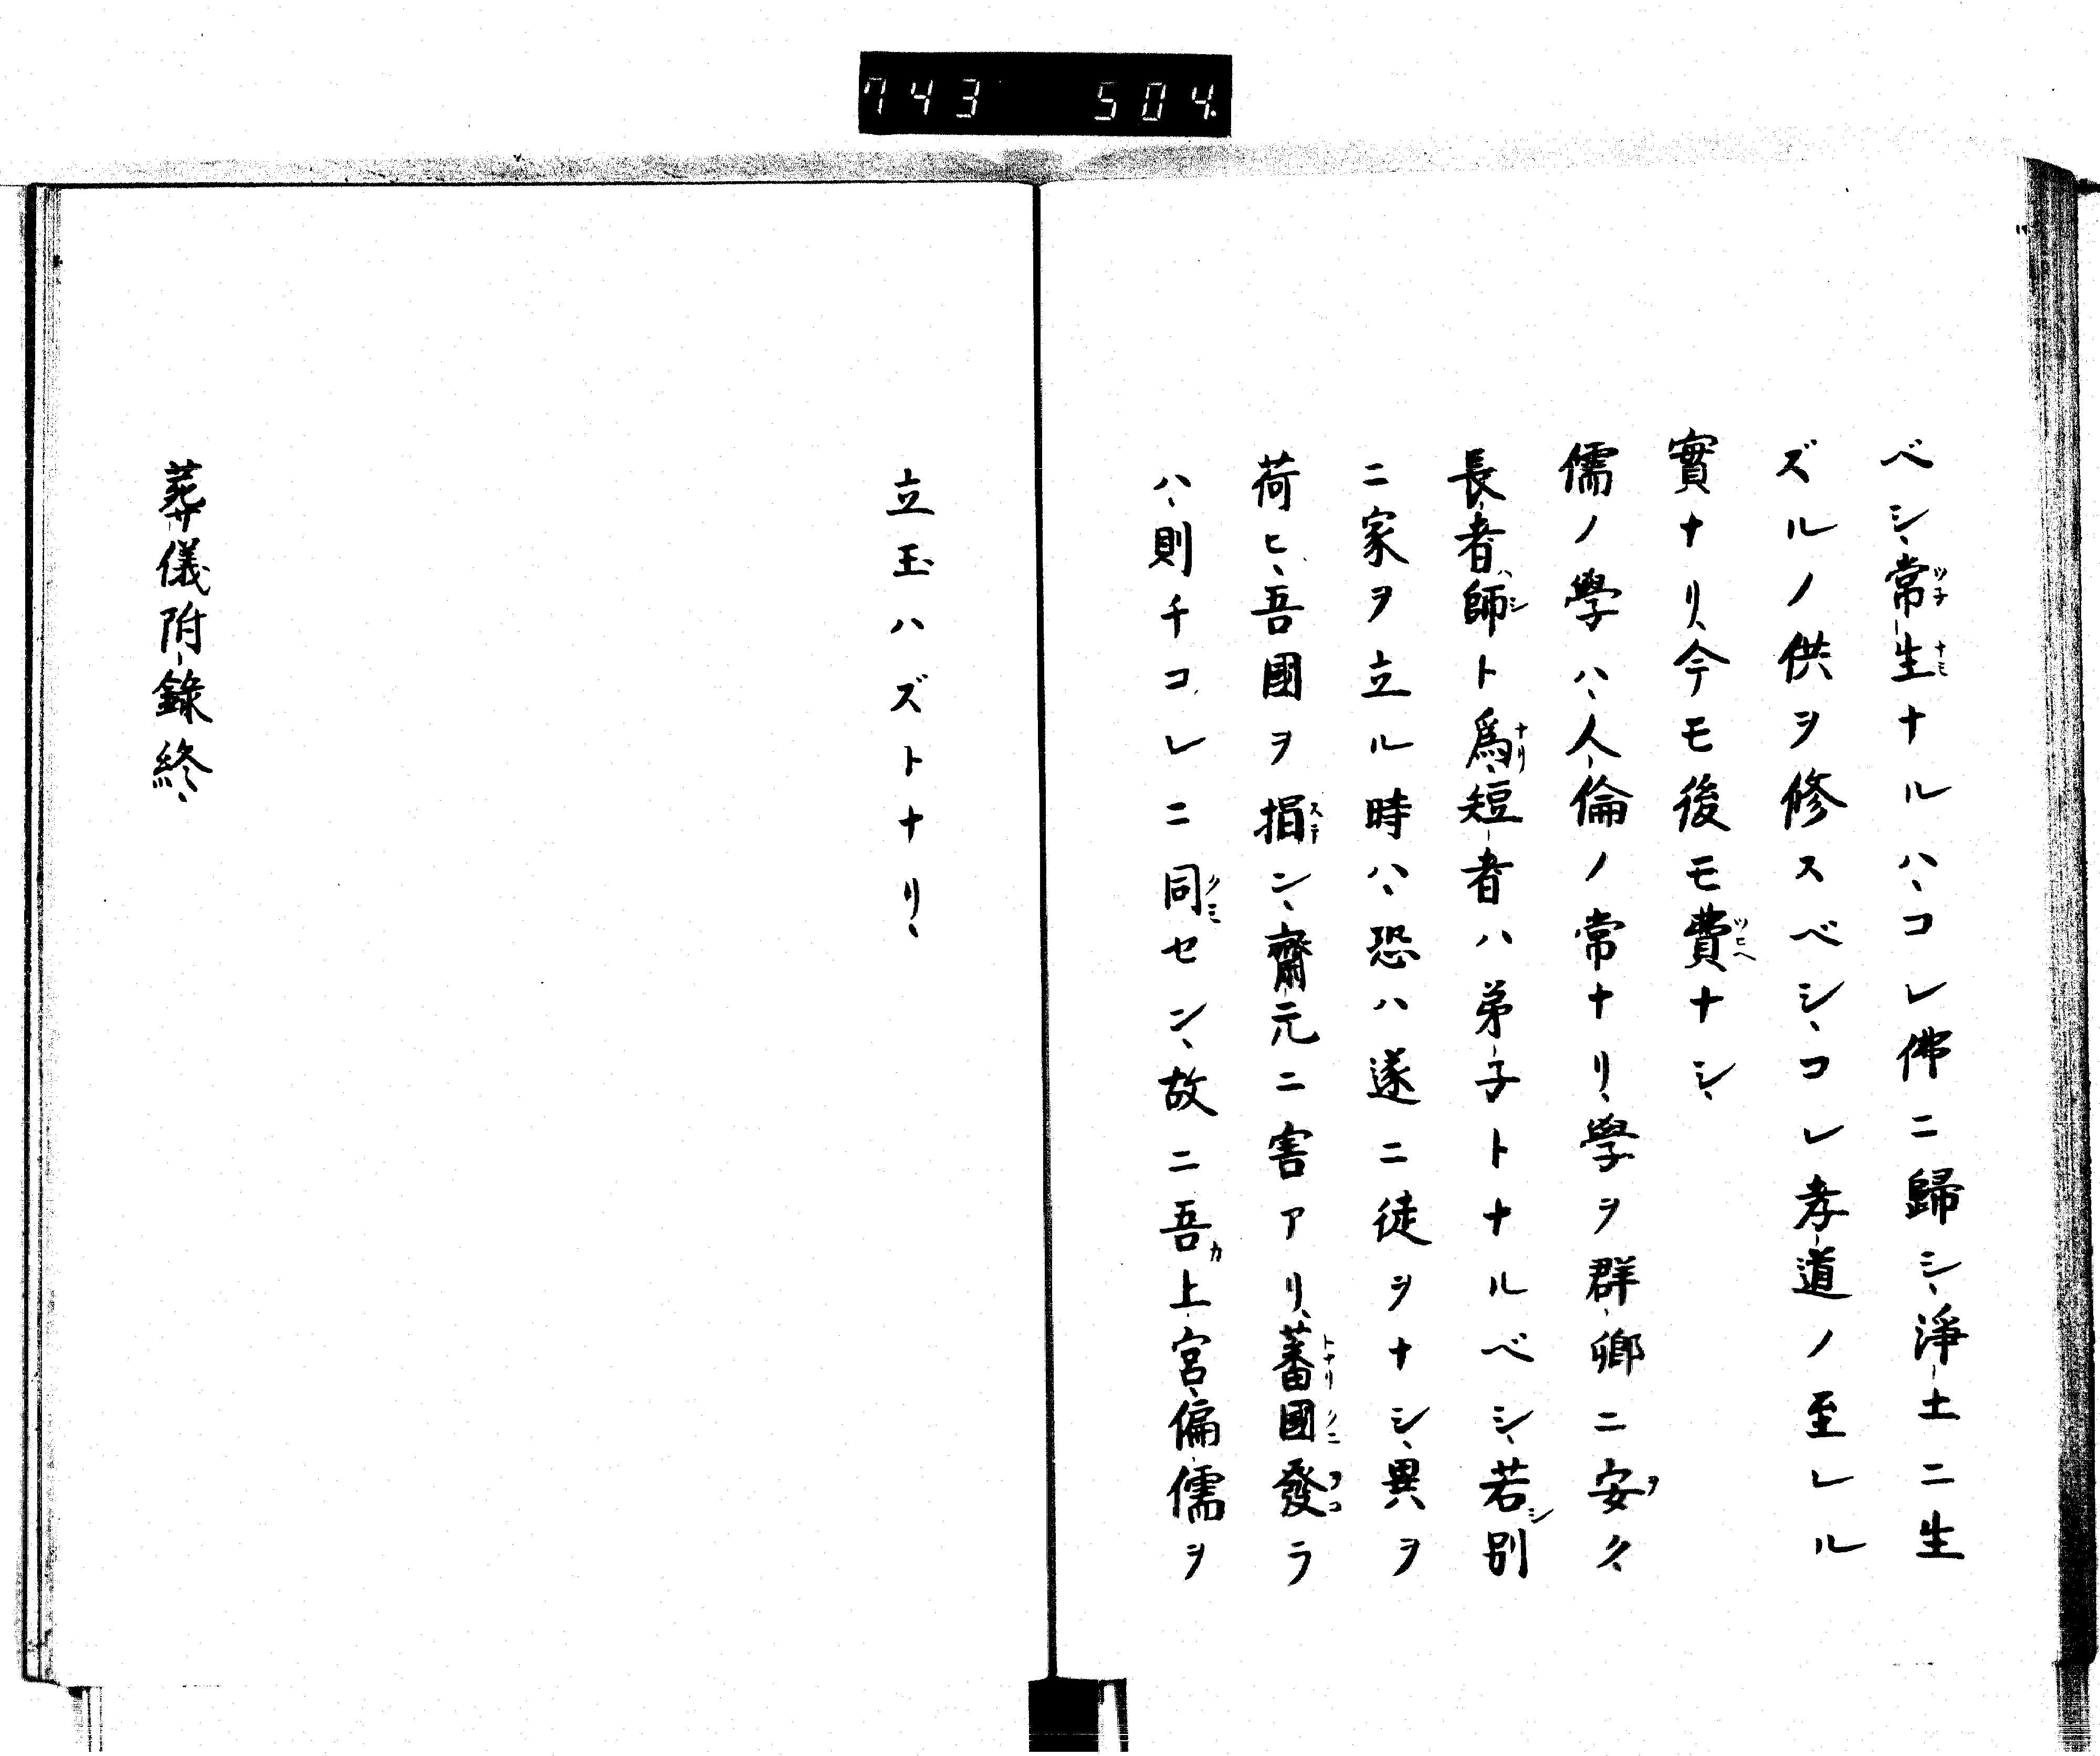 743 504
ベシ、常生ナルハ、コレ佛ニ歸シ、淨土ニ生
ズルノ供ヲ修スベシ、コレ孝道ノ至レル
實ナリ、今モ後モ費ナシ、
儒ノ學ハ、人倫ノ常ナリ、學ヲ群卿ニ安ク、
長者師ト爲、短者ハ弟子トナルベシ、若別
ニ家ヲ立ル時ハ、恐ハ遂ニ徒ヲナシ、異ヲ
荷ヒ、吾國ヲ損ン、齋元ニ害アリ、蕃國發ラ
ハ、則チコレニ同セン、故ニ吾上宮、偏儒ヲ
立玉ハズトナリ、
葬儀附錄終、